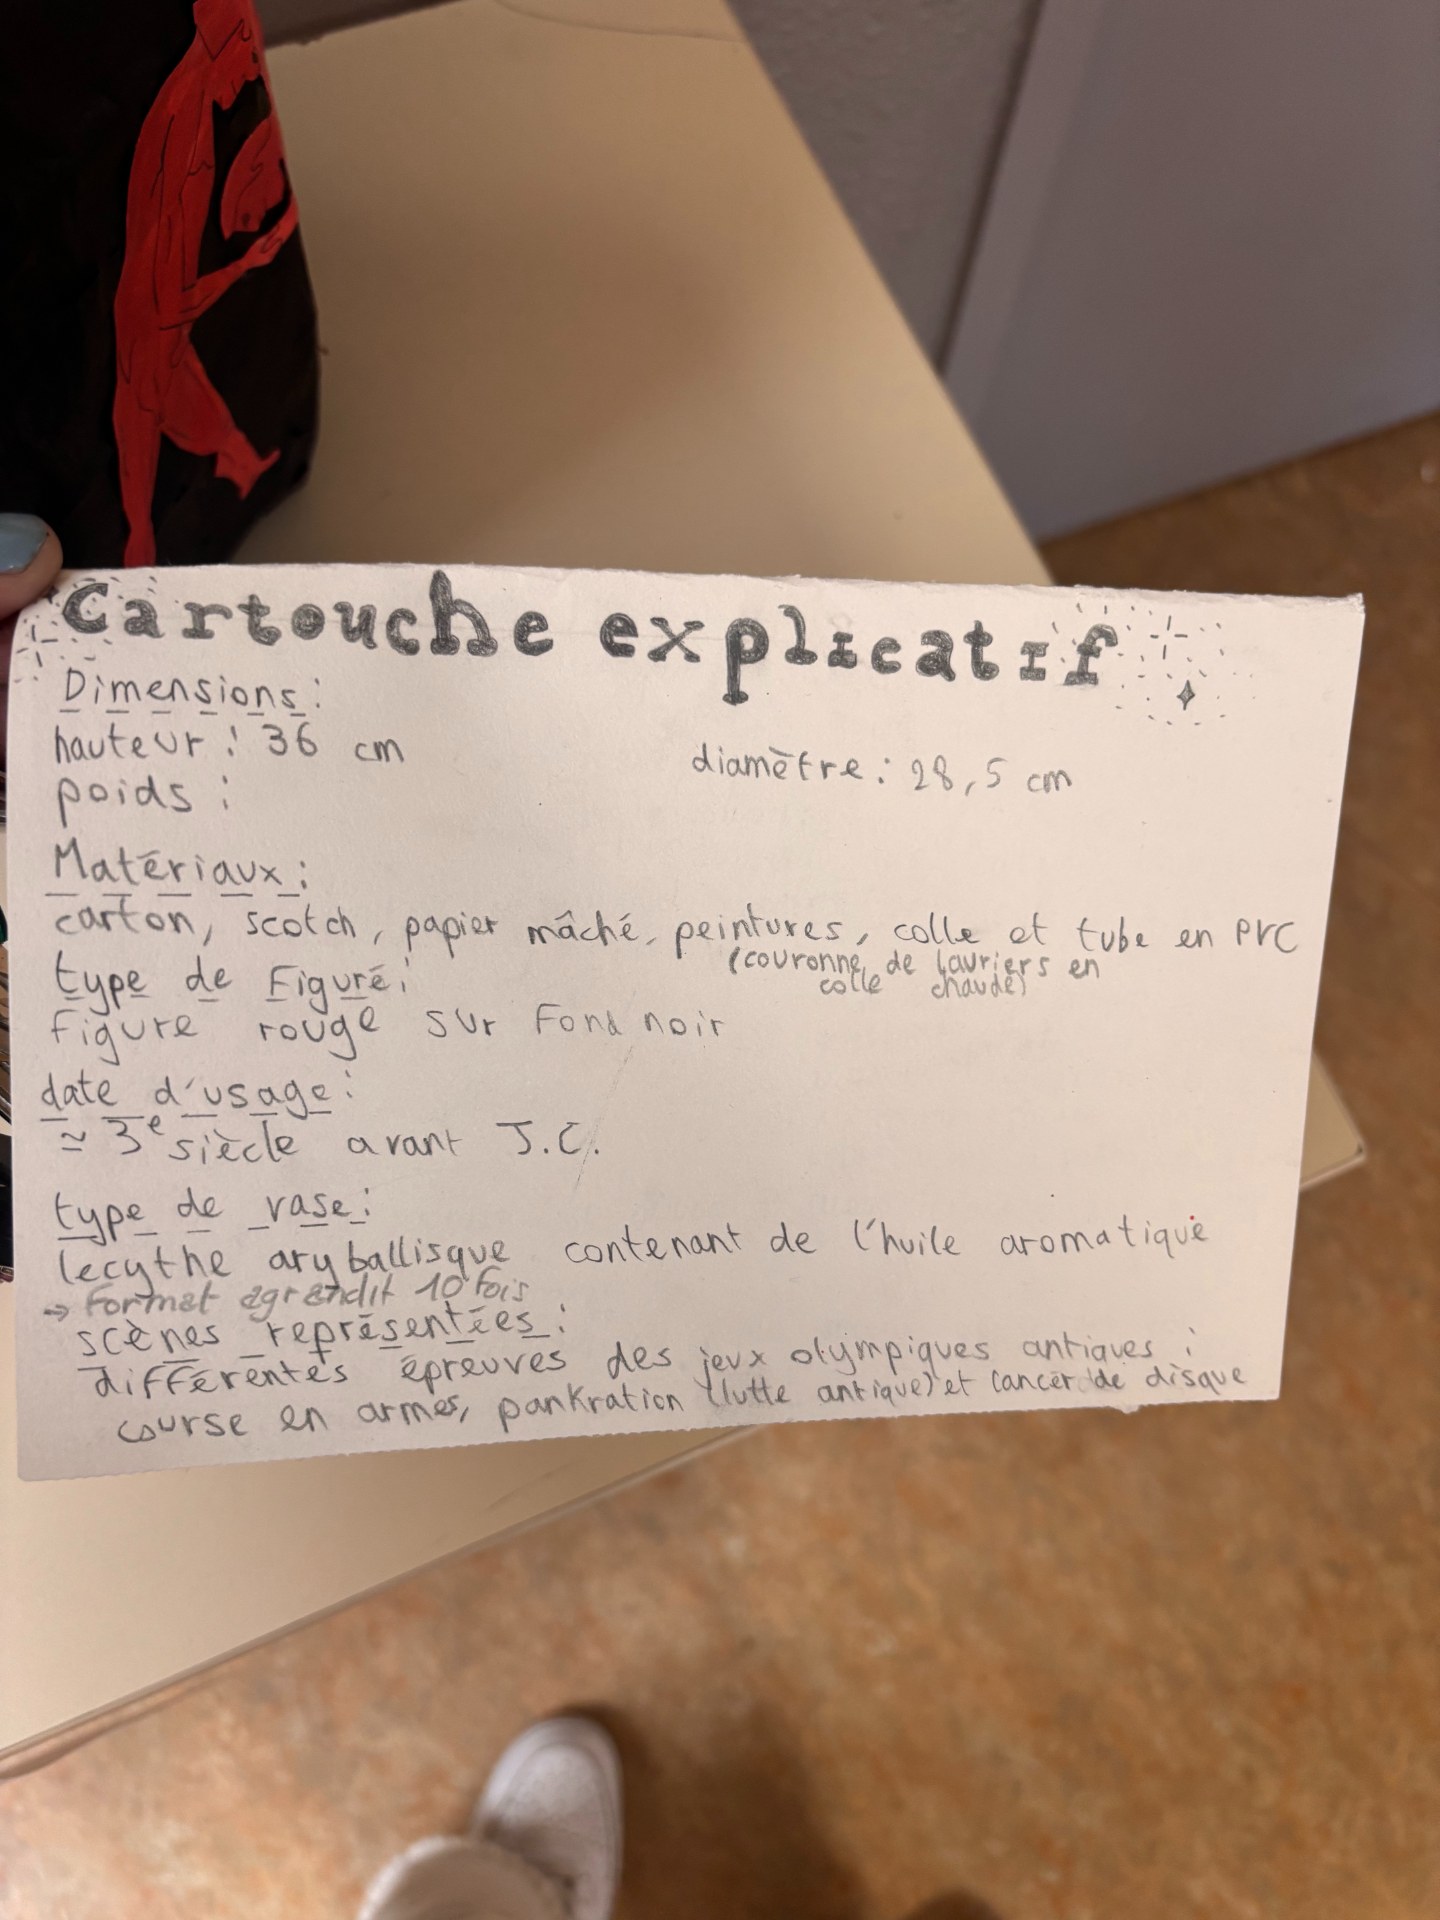 Cartouche explicatif
Dimensions :
hauteur : 36 cm
diamètre : 28,5 cm
poids :
Matériaux :
carton, scotch, papier mâché, peintures, colle et tube en PVC
(couronne de lauriers en
colle chaude)
type de Figuré :
Figure rouge sur Fond noir
date d'usage :
≃ 3e siècle avant J.C.
type de vase :
lecythe aryballisque contenant de l'huile aromatique
→ Format agrandit 10 fois
scènes représentées :
différentes épreuves des jeux olympiques antiques :
course en armes, pankration (lutte antique) et lancer de disque